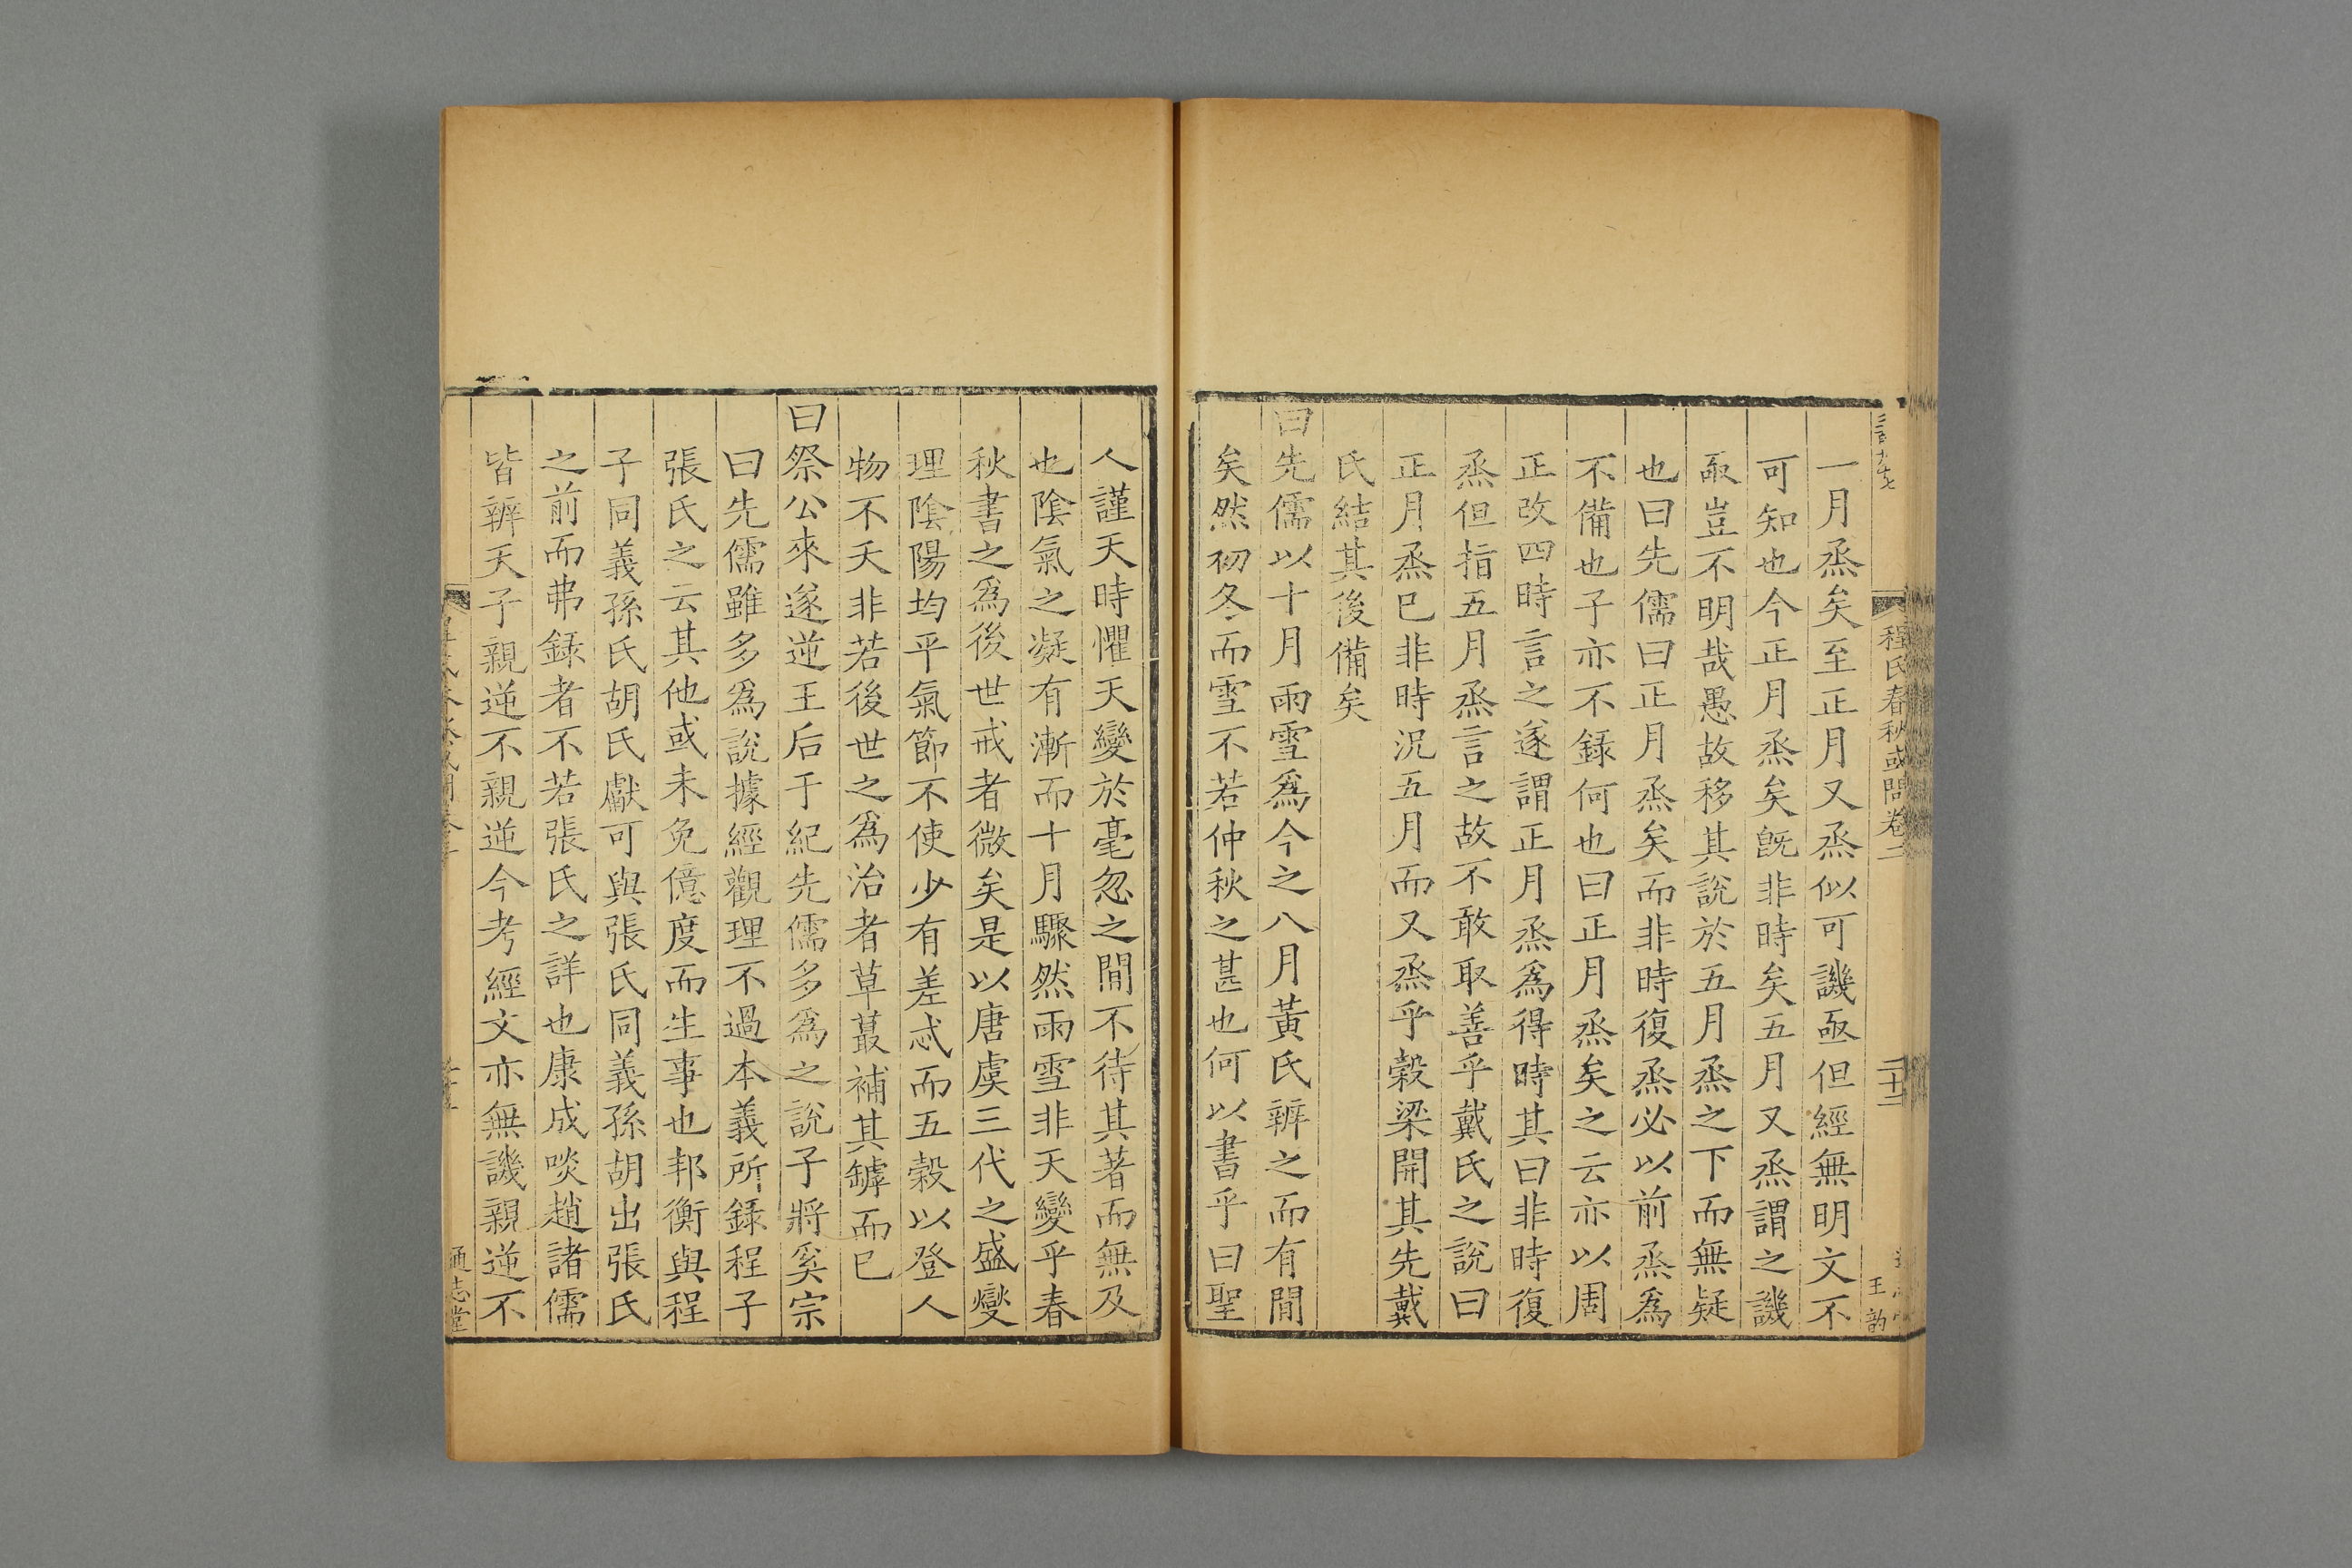 程氏春秋或問卷二
二十二
王
一月烝矣至正月又烝似可譏亟但經無明文不
可知也今正月烝矣旣非時矣五月又烝謂之譏
亟豈不明哉愚故移其說於五月烝之下而無疑
也曰先儒曰正月烝矣而非時復烝必以前烝爲
不備也子亦不錄何也曰正月烝矣之云亦以周
正改四時言之遂謂正月烝爲得時其曰非時復
烝但指五月烝言之故不敢取善乎戴氏之說曰
正月烝已非時況五月而又烝乎穀梁開其先戴
氏結其後備矣
曰先儒以十月雨雪爲今之八月黃氏辨之而有間
矣然初冬而雪不若仲秋之甚也何以書乎曰聖
人謹天時懼天變於毫忽之間不待其著而無及
也陰氣之凝有漸而十月驟然雨雪非天變乎春
秋書之爲後世戒者微矣是以唐虞三代之盛燮
理陰陽均平氣節不使少有差忒而五穀以登人
物不夭非若後世之爲治者草蕞補其罅而已
曰祭公來遂逆王后于紀先儒多爲之說子將奚宗
曰先儒雖多爲說據經觀理不過本義所錄程子
張氏之云其他或未免億度而生事也邦衡與程
子同義孫氏胡氏獻可與張氏同義孫胡出張氏
之前而弗錄者不若張氏之詳也康成啖趙諸儒
皆辨天子親逆不親逆今考經文亦無譏親逆不
通志堂